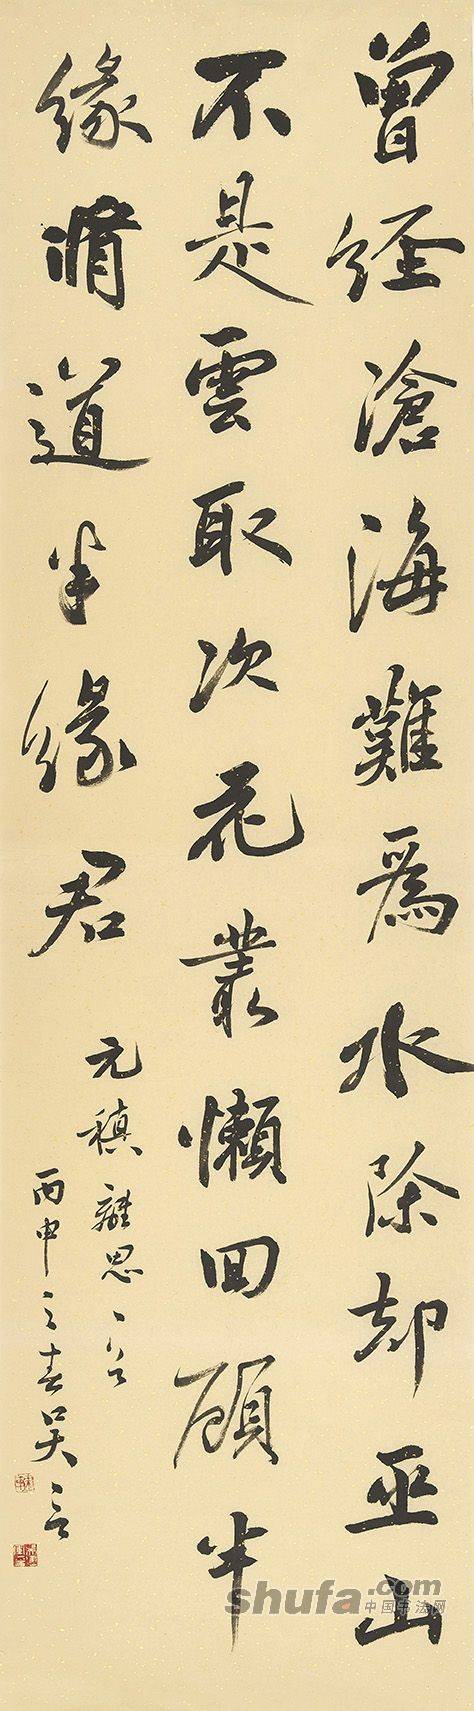 曾經滄海難爲水除却巫山
不是雲取次花叢懶回顧半
緣脩道半緣君
元稹離思一首
丙申之春吴言
shufa.com
中国书法网